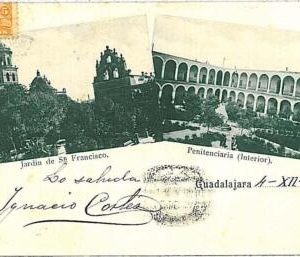 Jardín de Sn Francisco.
Penitenciaria (Interior).
Lo saluda
Guadalajara 4-XII-
Ignacio Cortes